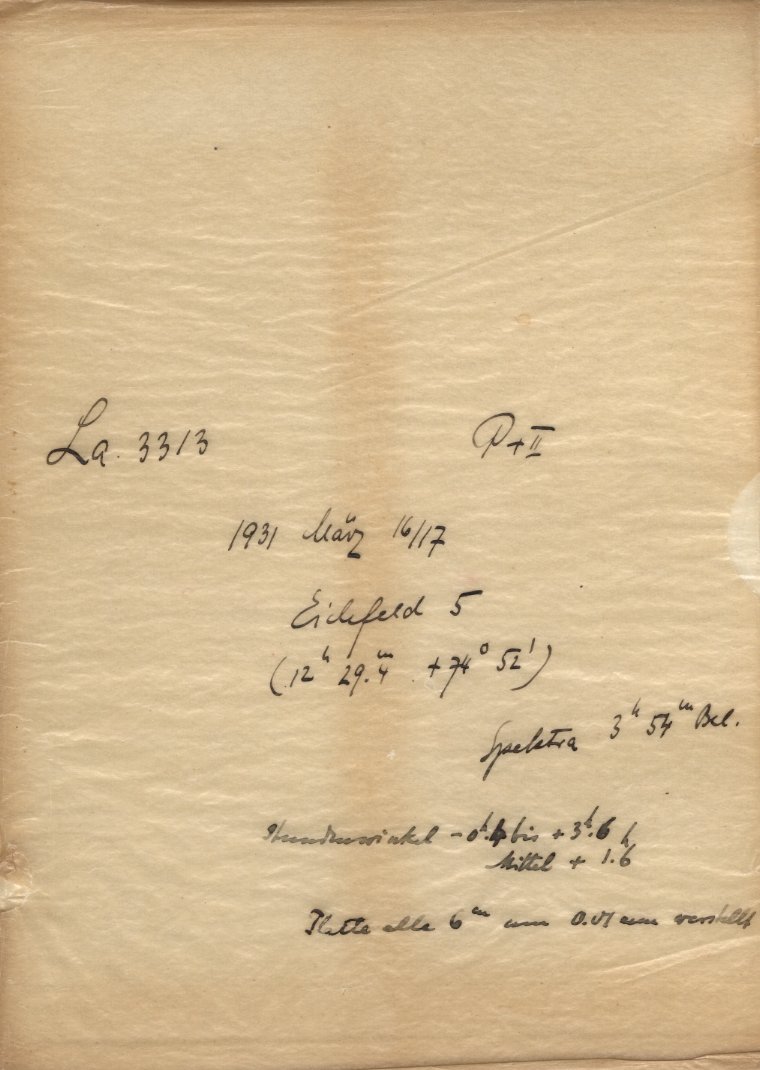 La. 3313
P+II
1931 März 16/17
Eichfeld 5
(12ʰ 29.ᵐ4 +74° 52')
Spektra 3ʰ 54ᵐ Bel.
Stundenwinkel -0ʰ.4 bis +3ʰ.6
Mittel + 1ʰ.6
Platte alle 6ᵐ um 0.01 mm verstellt